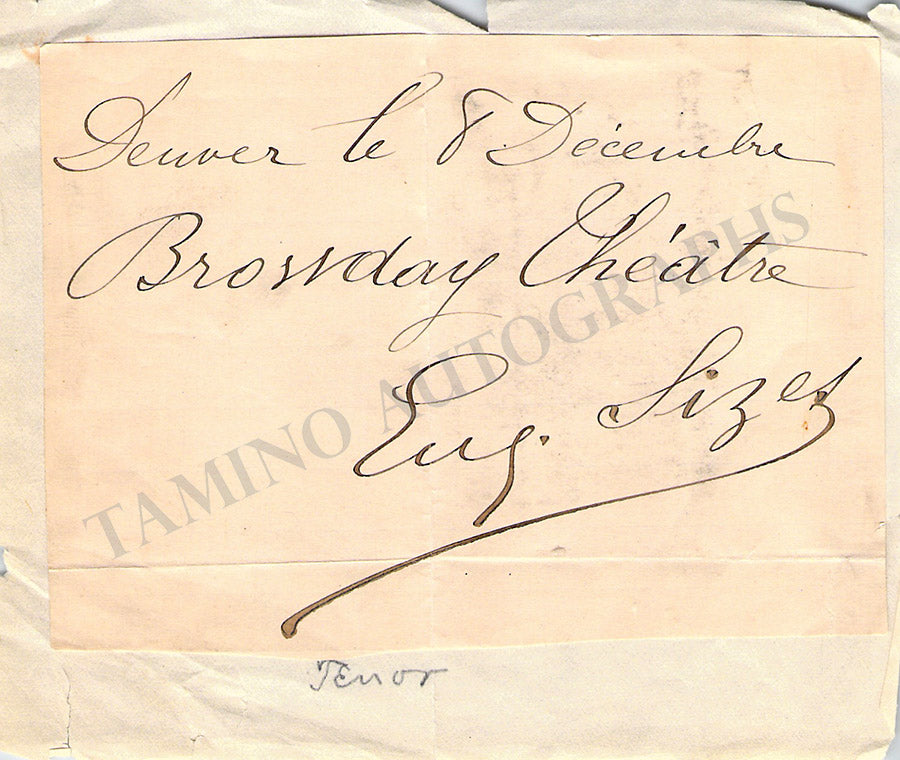 Denver le 8 Décembre
Brossday Théâtre
Eug. Sizes
Tenor
TAMINO AUTOGRAPHS